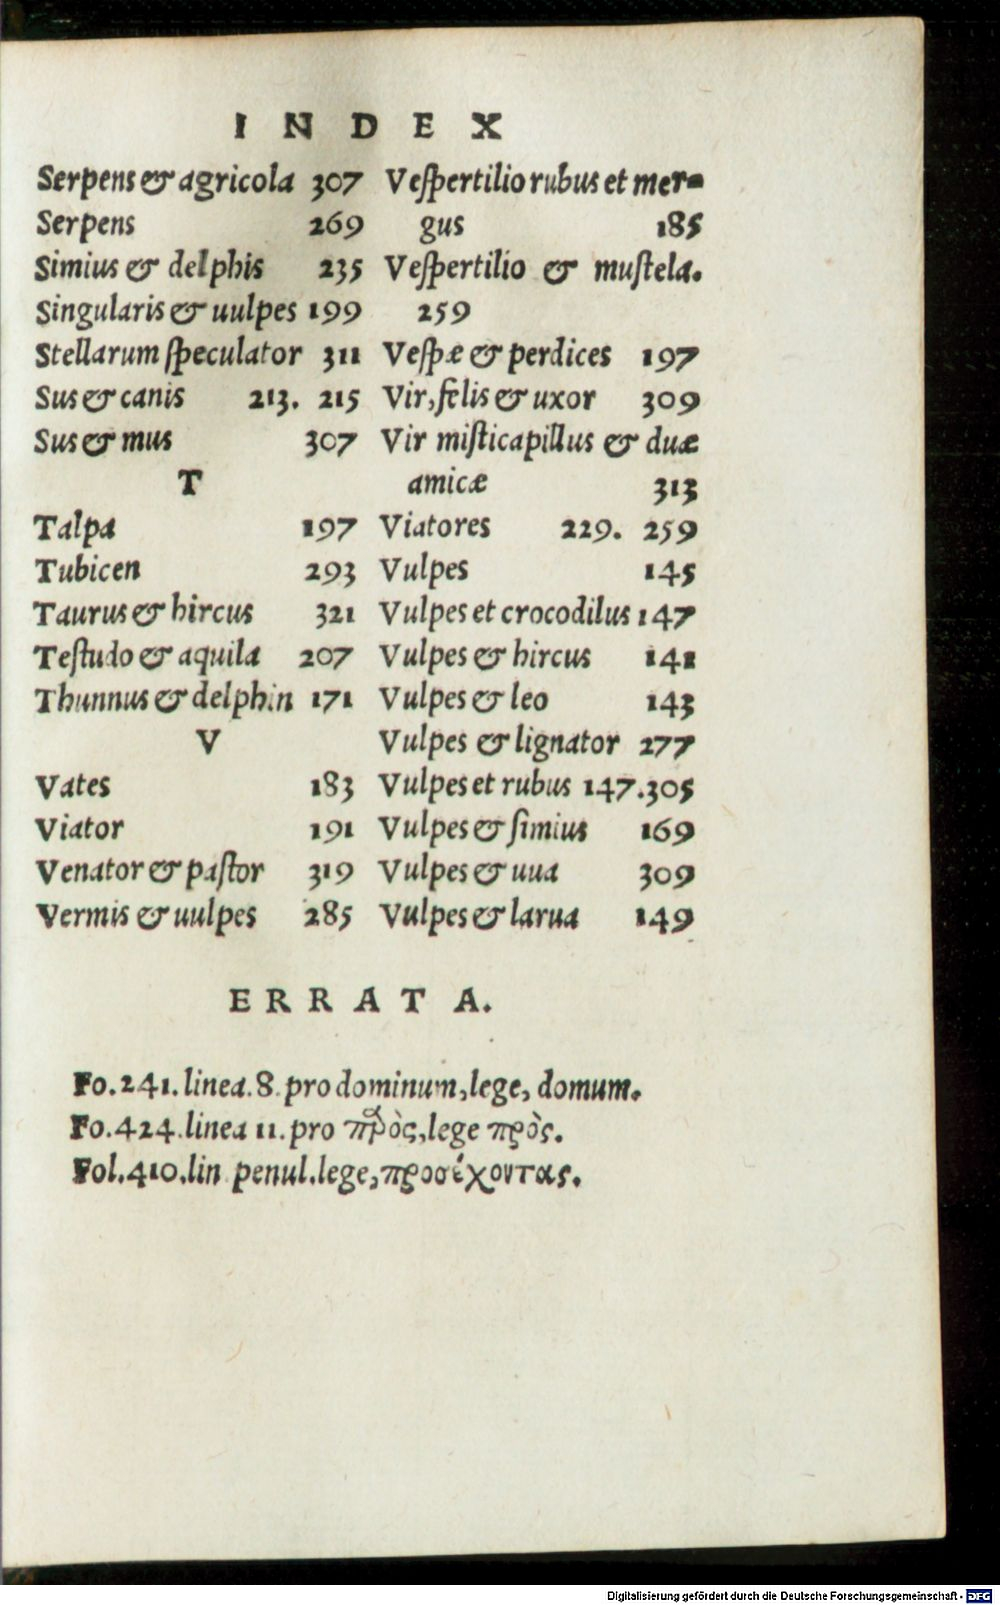 INDEX
Serpens & agricola 307
Serpens 269
Simius & delphis 235
Singularis & uulpes 199
Stellarum speculator 311
Sus & canis 213. 215
Sus & mus 307
T
Talpa 197
Tubicen 293
Taurus & hircus 321
Testudo & aquila 207
Thunnus & delphin 171
V
Vates 183
Viator 191
Venator & pastor 319
Vermis & uulpes 285
Vespertilio rubus et mer-
gus 185
Vespertilio & mustela.
259
Vespæ & perdices 197
Vir, felis & uxor 309
Vir misticapillus & duæ
amicæ 313
Viatores 229. 259
Vulpes 145
Vulpes et crocodilus 147
Vulpes & hircus 141
Vulpes & leo 143
Vulpes & lignator 277
Vulpes et rubus 147.305
Vulpes & simius 169
Vulpes & uua 309
Vulpes & larua 149
ERRATA.
Fo.241.linea.8.pro dominum,lege, domum.
Fo.424.linea 11.pro πρὸς,lege πρὸς.
Fol.410.lin penul.lege,προσέχοντας.
Digitalisierung gefördert durch die Deutsche Forschungsgemeinschaft - DFG